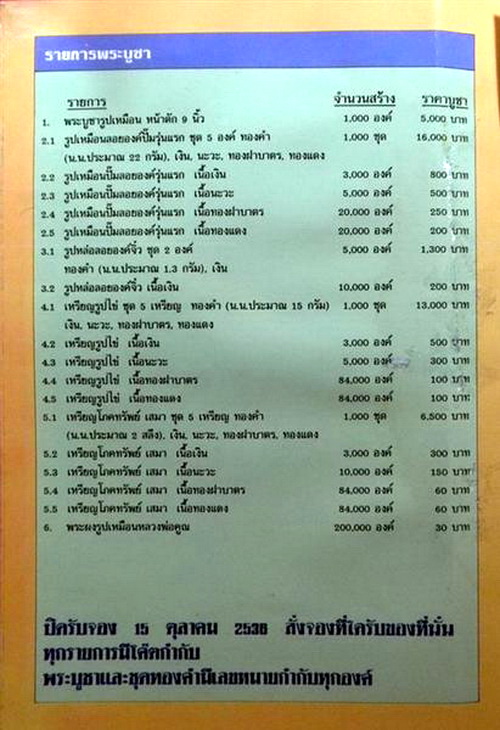 รายการพระบูชา
รายการ จำนวนสร้าง ราคาบูชา
1. พระบูชารูปเหมือน หน้าตัก 9 นิ้ว 1,000 องค์ 5,000 บาท
2.1 รูปเหมือนลอยองค์ปั๊มรุ่นแรก ชุด 5 องค์ ทองคำ 1,000 ชุด 16,000 บาท
(น.น.ประมาณ 22 กรัม), เงิน, นะวะ, ทองฝาบาตร, ทองแดง
2.2 รูปเหมือนปั๊มลอยองค์รุ่นแรก เนื้อเงิน 3,000 องค์ 800 บาท
2.3 รูปเหมือนปั๊มลอยองค์รุ่นแรก เนื้อนะวะ 5,000 องค์ 500 บาท
2.4 รูปเหมือนปั๊มลอยองค์รุ่นแรก เนื้อทองฝาบาตร 20,000 องค์ 250 บาท
2.5 รูปเหมือนปั๊มลอยองค์รุ่นแรก เนื้อทองแดง 20,000 องค์ 200 บาท
3.1 รูปหล่อลอยองค์จิ๋ว ชุด 2 องค์ 5,000 องค์ 1,300 บาท
ทองคำ (น.น.ประมาณ 1.3 กรัม), เงิน
3.2 รูปหล่อลอยองค์จิ๋ว เนื้อเงิน 10,000 องค์ 200 บาท
4.1 เหรียญรูปไข่ ชุด 5 เหรียญ ทองคำ (น.น.ประมาณ 15 กรัม) 1,000 ชุด 13,000 บาท
เงิน, นะวะ, ทองฝาบาตร, ทองแดง
4.2 เหรียญรูปไข่ เนื้อเงิน 3,000 องค์ 500 บาท
4.3 เหรียญรูปไข่ เนื้อนะวะ 5,000 องค์ 300 บาท
4.4 เหรียญรูปไข่ เนื้อทองฝาบาตร 84,000 องค์ 100 บาท
4.5 เหรียญรูปไข่ เนื้อทองแดง 84,000 องค์ 100 บาท
5.1 เหรียญโภคทรัพย์ เสมา ชุด 5 เหรียญ ทองคำ 1,000 ชุด 6,500 บาท
(น.น.ประมาณ 2 สลึง), เงิน, นะวะ, ทองฝาบาตร, ทองแดง
5.2 เหรียญโภคทรัพย์ เสมา เนื้อเงิน 3,000 องค์ 300 บาท
5.3 เหรียญโภคทรัพย์ เสมา เนื้อนะวะ 10,000 องค์ 150 บาท
5.4 เหรียญโภคทรัพย์ เสมา เนื้อทองฝาบาตร 84,000 องค์ 60 บาท
5.5 เหรียญโภคทรัพย์ เสมา เนื้อทองแดง 84,000 องค์ 60 บาท
6. พระผงรูปเหมือนหลวงพ่อคูณ 200,000 องค์ 30 บาท
ปิดรับจอง 15 ตุลาคม 2536 สั่งจองที่ใดรับของที่นั่น
ทุกรายการมีโค๊ตกำกับ
พระบูชาและชุดทองคำมีเลขหมายกำกับทุกองค์